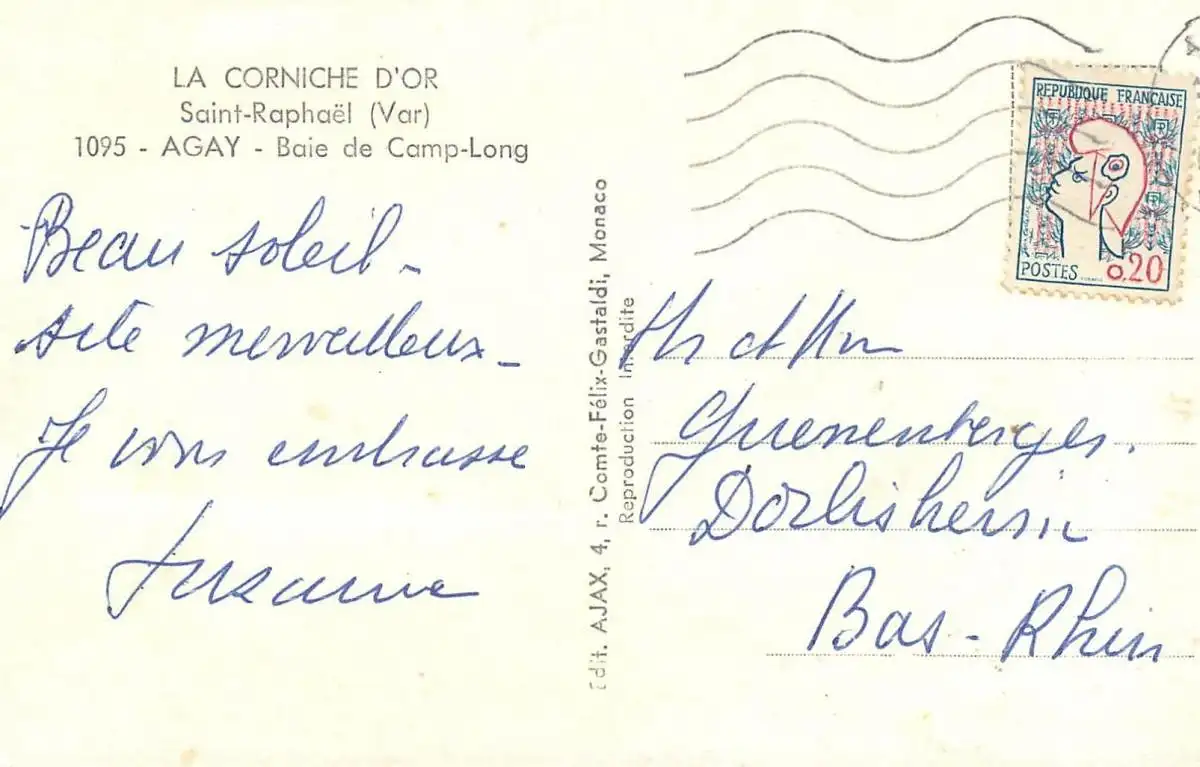 LA CORNICHE D'OR
Saint-Raphaël (Var)
1095 - AGAY - Baie de Camp-Long
Beau soleil -
site merveilleux -
Je vous embrasse
Suzanne
Edit. AJAX, 4, r. Comte-Félix-Gastaldi, Monaco
Reproduction Interdite
REPUBLIQUE FRANÇAISE
POSTES 0,20
Mr et Mme
Dorlisheim
Bas-Rhin